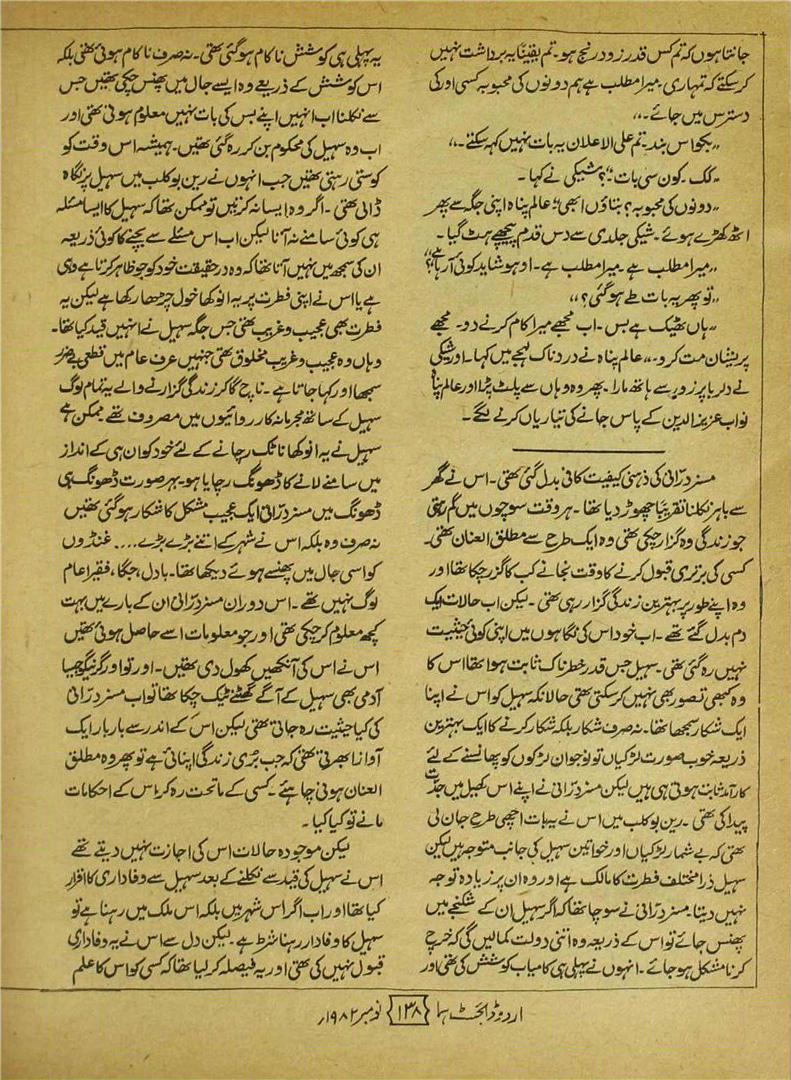 جانتا ہوں کہ تم کس قدر زود رنج ہو۔ تم یقیناً یہ برداشت نہیں
کر سکتے کہ تمہاری۔ میرا مطلب ہے ہم دونوں کی محبوبہ کسی اور کی
دسترس میں جائے۔،،
،،بکواس بند۔ تم علی الاعلان یہ بات نہیں کہہ سکتے۔،،
،،کک۔ کون سی بات؟،، شیکی نے کہا۔
،،دونوں کی محبوبہ؟ بتاؤں ابھی،، عالم پناہ اپنی جگہ سے پھر
اٹھ کھڑے ہوئے۔ شیکی جلدی سے دس قدم پیچھے ہٹ گیا۔
،،میرا مطلب ہے۔ میرا مطلب ہے۔ اوہو شاید کوئی آ رہا ہے؟،،
،،تو پھر یہ بات طے ہو گئی؟،،
،،ہاں ٹھیک ہے بس۔ اب مجھے میرا کام کرنے دو۔ مجھے
پریشان مت کرو۔،، عالم پناہ نے دردناک لہجے میں کہا۔ اور شیکی
نے دلربا پر زور سے ہاتھ مارا۔ پھر وہ وہاں سے پلٹ پڑا اور عالم پناہ
نواب عزیز الدین کے پاس جانے کی تیاریاں کرنے لگے۔
مسز درّانی کی ذہنی کیفیت کافی بدل گئی تھی۔ اس نے گھر
سے باہر نکلنا تقریباً چھوڑ دیا تھا۔ ہر وقت سوچوں میں گم رہتی
جو زندگی وہ گزار چکی تھی وہ ایک طرح سے مطلق العنان تھی۔
کسی کی برتری قبول کرنے کا وقت نجانے کب کا گزر چکا تھا اور
وہ اپنے طور پر بہترین زندگی گزار رہی تھی۔ لیکن اب حالات یک
دم بدل گئے تھے۔ اب خود اس کی نگاہوں میں اپنی کوئی حیثیت
نہیں رہ گئی تھی۔ سہیل جس قدر خطرناک ثابت ہوا تھا اس کا
وہ کبھی تصور بھی نہیں کر سکتی تھی حالانکہ سہیل کو اس نے اپنا
ایک شکار سمجھا تھا۔ نہ صرف شکار بلکہ شکار کرنے کا ایک بہترین
ذریعہ خوب صورت لڑکیاں تو نوجوان لڑکوں کو پھانسنے کے لئے
کارآمد ثابت ہوتی ہی ہیں لیکن مسز درّانی نے اپنے اس کھیل میں جدّت
پیدا کی تھی۔ رین بو کلب میں اس نے یہ بات اچھی طرح جان لی
تھی کہ بے شمار لڑکیاں اور خواتین سہیل کی جانب متوجہ ہیں لیکن
سہیل ذرا مختلف فطرت کا مالک ہے اور وہ ان پر زیادہ توجہ
نہیں دیتا۔ مسز درّانی نے سوچا تھا کہ اگر سہیل ان کے شکنجے میں
پھنس جائے تو اس کے ذریعہ وہ اتنی دولت کما لیں گی کہ خرچ
کرنا مشکل ہو جائے۔ انہوں نے پہلی ہی کامیاب کوشش کی تھی اور
یہ پہلی ہی کوشش ناکام ہو گئی تھی۔ نہ صرف ناکام ہوئی تھی بلکہ
اس کوشش کے ذریعے وہ ایسے جال میں پھنس چکی تھیں جس
سے نکلنا اب انہیں اپنے بس کی بات نہیں معلوم ہوتی تھی اور
اب وہ سہیل کی محکوم بن کر رہ گئی تھیں۔ ہمیشہ اس وقت کو
کوستی رہتی تھیں جب انہوں نے رین بو کلب میں سہیل پر نگاہ
ڈالی تھی۔ اگر وہ ایسا نہ کرتیں تو ممکن تھا کہ سہیل کا ایسا مسئلہ
ہی کوئی سامنے نہ آتا لیکن اب اس مسئلے سے بچنے کا کوئی ذریعہ
ان کی سمجھ میں نہیں آتا تھا کہ وہ درحقیقت خود کو جو ظاہر کرتا ہے وہی
ہے یا اس نے اپنی فطرت پر یہ انوکھا خول چڑھا رکھا ہے لیکن یہ
فطرت بھی عجیب و غریب تھی جس جگہ سہیل نے انہیں قید کیا تھا۔
وہاں وہ عجیب و غریب مخلوق تھی جنہیں عرف عام میں قطعی بے ضرر
سمجھا اور کہا جاتا ہے۔ ناچ گا کر زندگی گزارنے والے یہ تمام لوگ
سہیل کے ساتھ مجرمانہ کارروائیوں میں مصروف تھے۔ ممکن ہے
سہیل نے یہ انوکھا ناٹک رچانے کے لئے خود کو ان ہی کے انداز
میں سامنے لانے کا ڈھونگ رچایا ہو۔ بہر صورت ڈھونگ ہی
ڈھونگ میں مسز درّانی ایک عجیب مشکل کا شکار ہو گئی تھیں
نہ صرف وہ بلکہ اس نے شہر کے اتنے بڑے بڑے.... غنڈوں
کو اسی جال میں پھنسے ہوئے دیکھا تھا۔ بادل، جگا، فقیرا عام
لوگ نہیں تھے۔ اس دوران مسز درّانی ان کے بارے میں بہت
کچھ معلوم کر چکی تھی اور جو معلومات اسے حاصل ہوئی تھیں
اس نے اس کی آنکھیں کھول دی تھیں۔ اور تو اور گریگر جیسا
آدمی بھی سہیل کے آگے گھٹنے ٹیک چکا تھا تو اب مسز درّانی
کی کیا حیثیت رہ جاتی تھی لیکن اس کے اندر سے بار بار ایک
آواز ابھرتی تھی کہ جب بُری زندگی اپنائی ہے تو پھر وہ مطلق
العنان ہونی چاہئے۔ کسی کے ماتحت رہ کر اس کے احکامات
مانے تو کیا کیا۔
لیکن موجودہ حالات اس کی اجازت نہیں دیتے تھے
اس نے سہیل کی قید سے نکلنے کے بعد سہیل سے وفاداری کا اقرار
کیا تھا اور اب اگر اس شہر میں بلکہ اس ملک میں رہنا ہے تو
سہیل کا وفادار رہنا شرط ہے۔ لیکن دل سے اس نے یہ وفاداری
قبول نہیں کی تھی اور یہ فیصلہ کر لیا تھا کہ کسی کو اس کا علم
اردو ڈائجسٹ ہما {۱۳۸} نومبر ۱۹۸۲ء